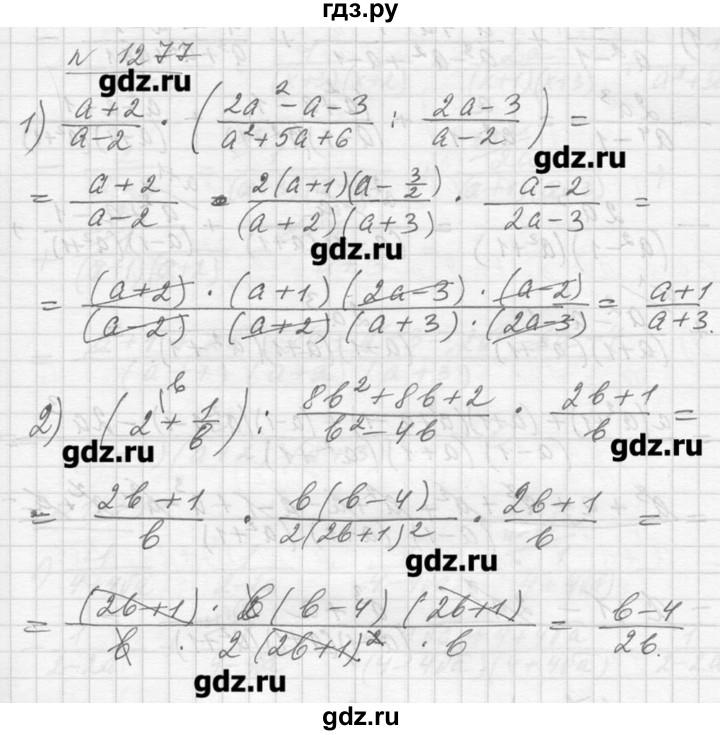 гдз.ру
№ 1277
gdz.ru
1) (a+2)/(a-2) · ( (2a²-a-3)/(a²+5a+6) : (2a-3)/(a-2) ) =
gdz.ru
= (a+2)/(a-2) · 2(a+1)(a-3/2)/((a+2)(a+3)) · (a-2)/(2a-3) =
gdz.ru
= (a+2)·(a+1)(2a-3)·(a-2)/((a-2)(a+2)(a+3)·(2a-3)) = (a+1)/(a+3).
2) (2\b + 1/b) : (8b²+8b+2)/(b²-4b) · (2b+1)/b =
gdz.ru
gdz.ru
= (2b+1)/b · b(b-4)/(2(2b+1)²) · (2b+1)/b =
gdz.ru
= (2b+1)·b(b-4)(2b+1)/(b·2(2b+1)²·b) = (b-4)/(2b).
gdz.ru
gdz.ru